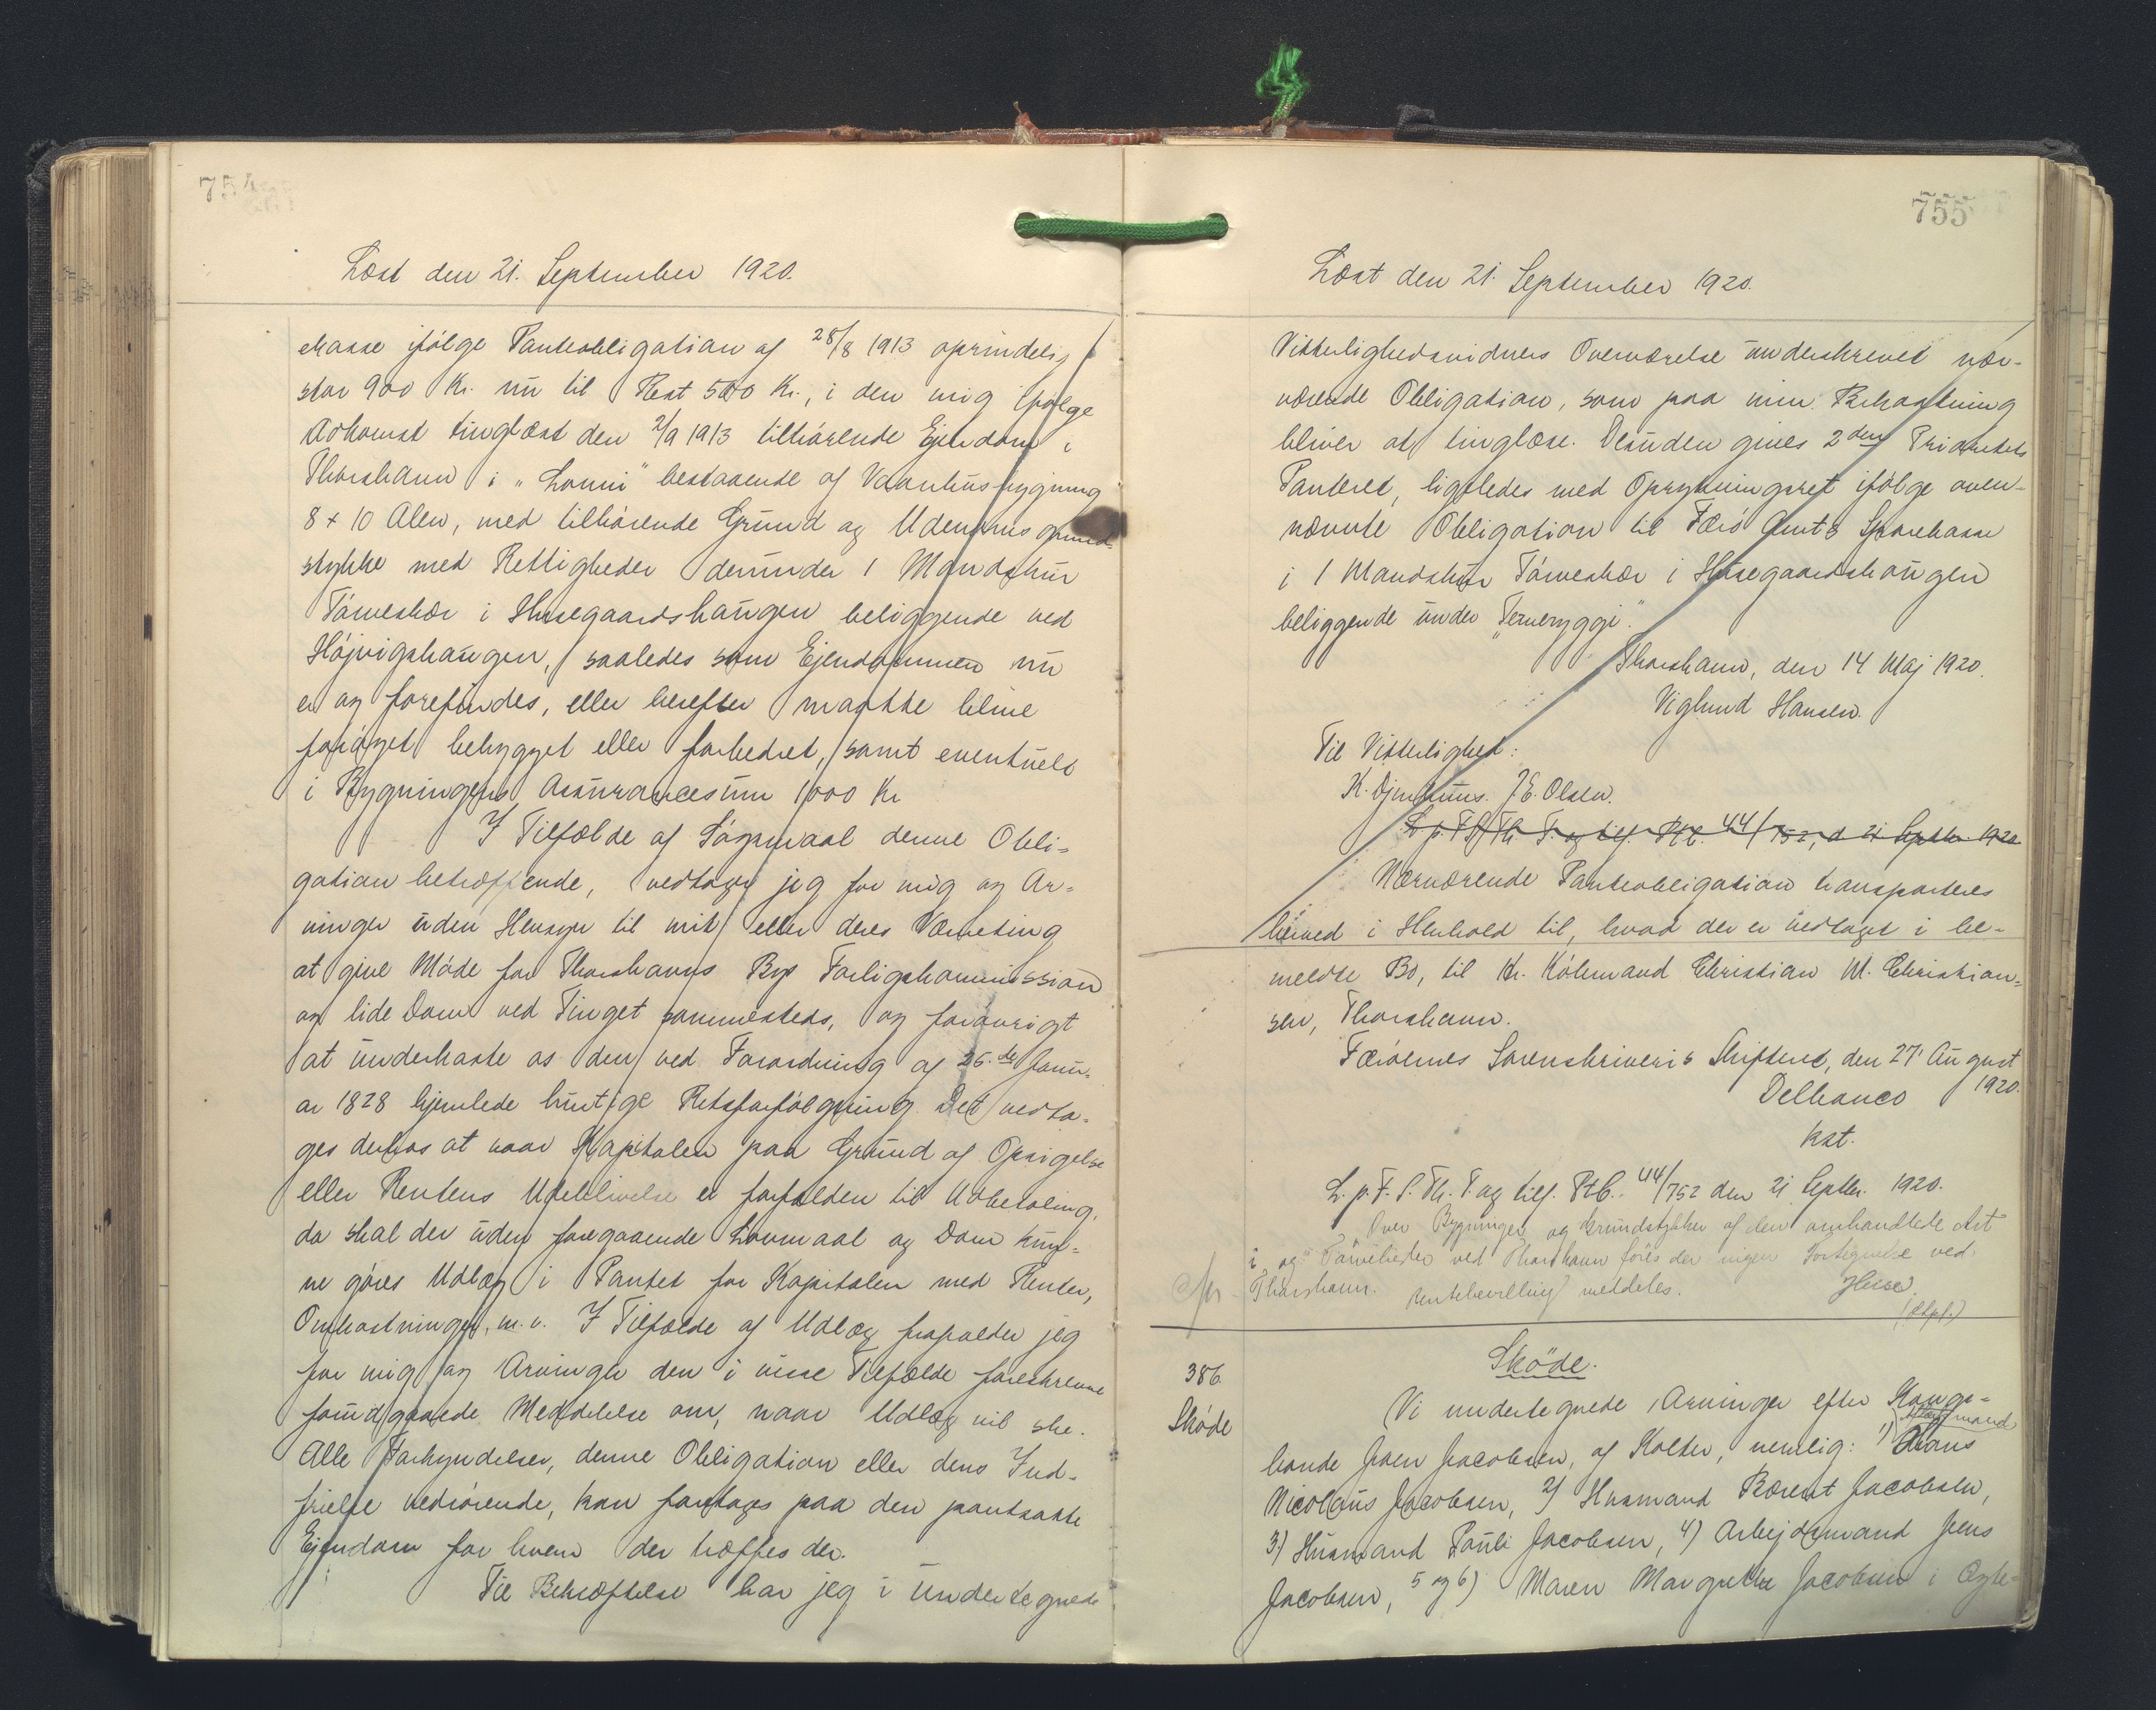 754
Læst den 21. September 1920.
ekasse ifølge Panteobligation af 28/8 1913 oprindelig
stor 900 Kr. nu til Rest 500 Kr., i den mig ifølge
Adkomst tinglæst den 2/9 1913 tilhørende Ejendom i
Thorshavn i "Lonni" bestaaende af Vaanhusbygning
8 + 10 Alen, med tilhørende Grund og Udenomsgrund-
stykke med Rettigheder derunder 1 Mandskur
Tørveskær i Husegaardshaugen beliggende ved
Højvigshaugen, saaledes som Ejendommen nu
er og forefindes, eller herefter maatte blive
forøget bebygget eller forbedret, samt eventuelt
i Bygningens Assurancesum 1000 Kr
I Tilfælde af Søgsmaal denne Obli-
gation betræffende, vedtager jeg for mig og Ar-
vinger uden Hensyn til mit eller deres Værneting
at give Møde for Thorshavns Bys Forligskommission
og lide Dom ved Tinget sammesteds, og forøvrigt
at underkaste os den ved Forordning af 25.de Janu-
ar 1828 hjemlede hurtige Retsforfølgning. Det vedta-
ges derhos at naar Kapitalen paa Grund af Opsigelse
eller Rentens Udeblivelse er forfalden til Udbetaling,
da skal der uden foregaaende Lovmaal og Dom kun-
ne gøres Udlæg i Pantet for Kapitalen med Renter,
Omkostninger, m.v. I Tilfælde af Udlæg frafalder jeg
for mig og Arvinger den i visse Tilfælde foreskrevne
forudgaaede Meddelelse om, naar Udlæg vil ske.
Alle Forkyndelser, denne Obligation eller dens Ind-
frielse vedrørende, kan foretages paa den pantsatte
Ejendom for hvem der træffes der.
Til Bekræftelse har jeg i undertegnede
755
Læst den 21. September 1920.
Vitterlighedsvidners Overværelse underskrevet nær-
værende Obligation, som paa min Bekostning
bliver at tinglæse. Desuden gives 2den Prioritets
Panteret, ligeledes med Oprykningsret ifølge oven-
nævnte Obligation til Færø Amts Sparekasse
i 1 Mandskur Tørveskær i Husegaardshaugen
beliggende under "Terneryggi".
Thorshavn, den 14 Maj 1920.
Viglund Hansen.
Til Vitterlighed:
K. Djurhuus. J.E. Olsen.
L. p. F. S. Th. T. og tilf. Ptb. 44/752, d 21 Septbr. 1920
Nærværende Panteobligation transporteres
herved i Henhold til, hvad der er vedtaget i be-
meldte Bo, til Hr. Købmand Christian M. Christian-
sen, Thorshavn.
Færøernes Sorenskriveris Skifteret, den 27' August
1920.
Delbanco
kst.
L. p. F. S. Th. T. og tilf. Ptb. 44/752 den 21 Septbr. 1920.
Over Bygninger og Grundstykker af den omhandlede Art
i og Tørveheder ved Thorshavn føres der ingen Fortegnelse ved
Thorshavn. Rentebevilling meddeles.
386
Skøde
Skøde.
Vi undertegnede Arvinger efter Konge-
bonde Joen Jacobsen, af Kolter, nemlig: 1) Hans
Nicolaus Jacobsen, 2) Husmand Berent Jacobsen,
3) Husmand Pauli Jacobsen, 4) Arbejdsmand Jens
Jacobsen, 5 og 6) Maren Margrethe Jacobsen i Ægte-